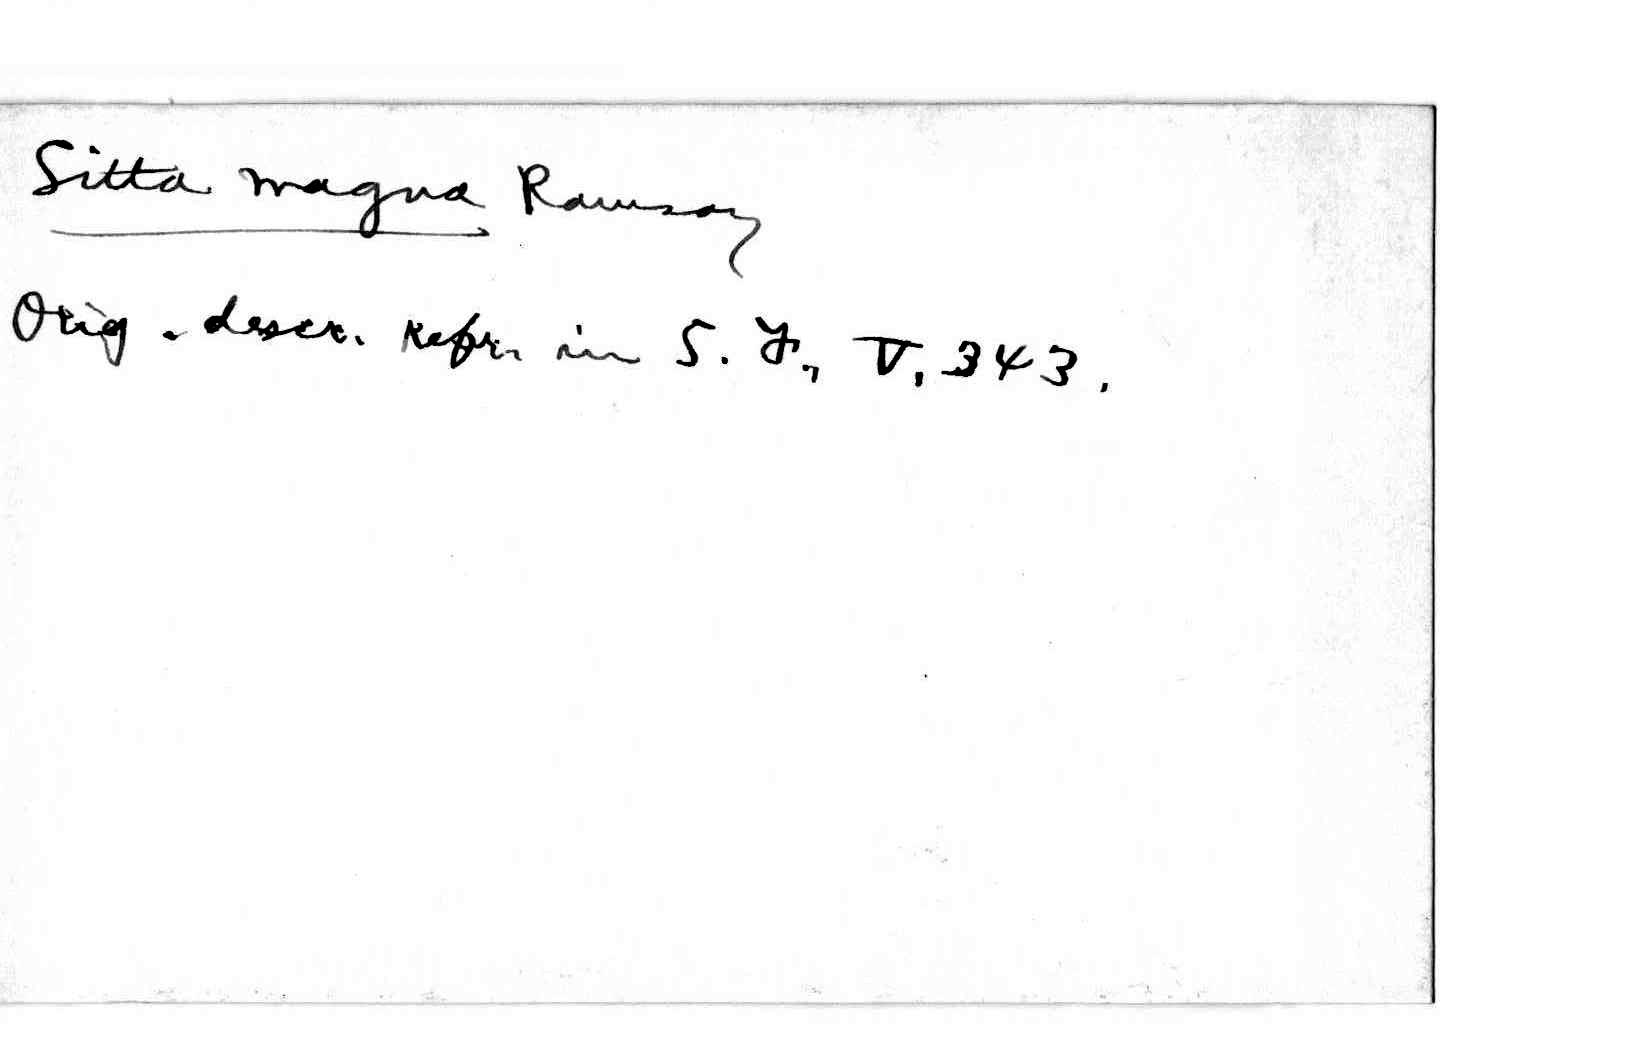 Sitta magna Ramsay
Orig. descr. repr. in S. F., V, 343.